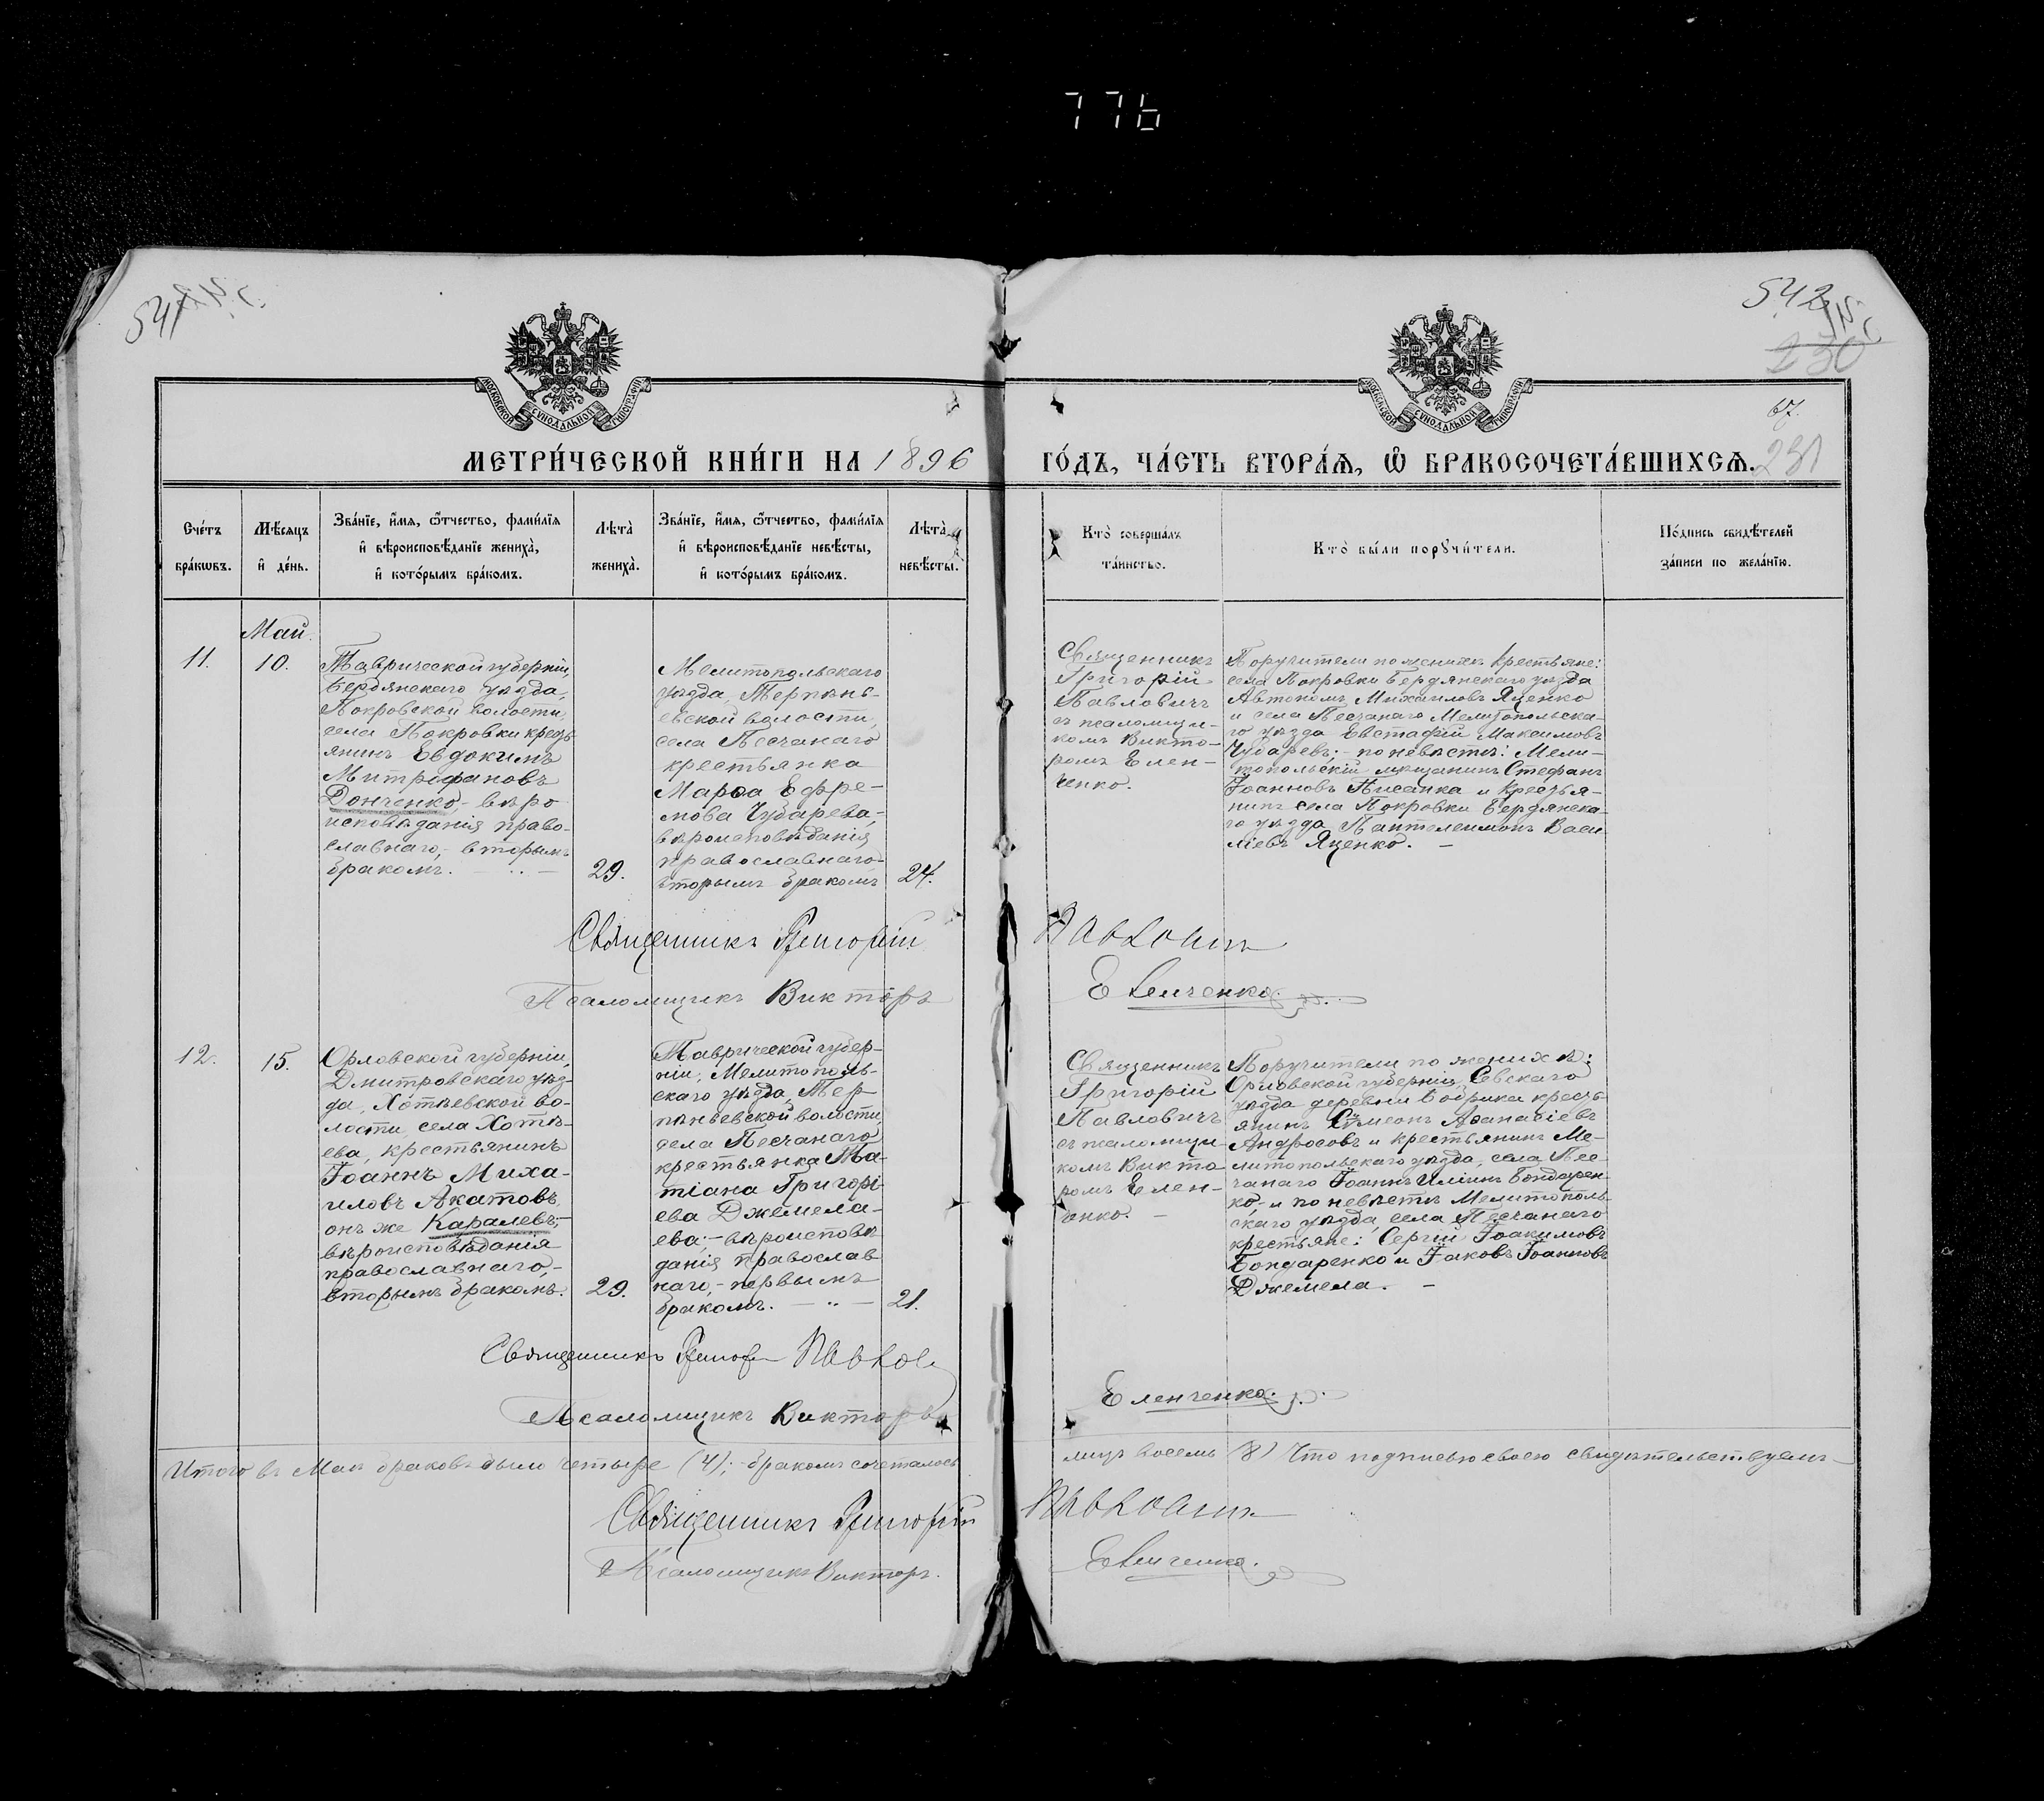 776
541
542
230
67.
231
МОСКОВСКОЙ СѴНОДАЛЬНОЙ ТИПОГРАФІИ
МОСКОВСКОЙ СѴНОДАЛЬНОЙ ТИПОГРАФІИ
МЕТРИ́ЧЕСКОЙ КНИ́ГИ НА 1896
ГО́ДЪ, ЧА́СТЬ ВТОРА́Ѧ, Ѽ БРАКОСОЧЕТА́ВШИХСѦ.
Сче́тъ
бра́кѡвъ.
Мѣ́сяцъ
и҆ де́нь.
Зва́нїе, и҆́мѧ, ѻ҆́тчество, фами́лїѧ
и҆ вѣроисповѣ́данїе жениха̀,
и҆ кото́рымъ бра́комъ.
Лѣта̀
жениха̀.
Зва́нїе, и҆́мѧ, ѻ҆́тчество, фами́лїѧ
и҆ вѣроисповѣ́данїе невѣ́сты,
и҆ кото́рымъ бра́комъ.
Лѣта̀
невѣ́сты.
Кто̀ соверша́лъ
та́инство.
Кто̀ бы́ли порꙋчи́тели.
По́дпись свидѣ́телей
за́писи по жела́нїю.
Май.
11.
10.
Таврической губерніи,
Бердянскаго уѣзда,
Покровской волости,
села Покровки кресть
янинъ Евдокимъ
Митрофановъ
Донченко - вѣро
исповѣданія право-
славнаго, - вторымъ
бракомъ.
29.
Мелитопольскаго
уѣзда, Терпѣнь-
евской волости,
села Песчанаго
крестьянка
Марѳа Ефре-
мова Чубарева, -
вѣроисповѣданія
православнаго
вторымъ бракомъ
24.
Священникъ
Григорій
Павловичъ
съ псаломщи-
комъ Викто-
ромъ Елен-
ченко.
Поручители по женихѣ крестьяне:
села Покровки Бердянскаго уѣзда
Автономъ Михаиловъ Яценко
и села Песчанаго Мелитопольска-
го уѣзда Евстафій Максимовъ
Чубаревъ; - по невѣстѣ: Мели-
топольскій мѣщанинъ Стефанъ
Іоанновъ Писанка и крестья-
нинъ села Покровки Бердянска-
го уѣзда Пантелеимонъ Васи
ліевъ Яценко. -
Священникъ Григорій
Павловичъ
Псаломщикъ Викторъ
Еленченко.
12.
15.
Орловской губерніи,
Дмитровскаго уѣз-
да, Хотѣевской во-
лости, села Хотѣ-
ева, крестьянинъ
Іоаннъ Миха-
иловъ Акатовъ,
онъ же Каралевъ; -
вѣроисповѣданія
православнаго, -
вторымъ бракомъ.
29.
Таврической губер-
ніи, Мелитополь-
скаго уѣзда, Тер
пѣньевской волости,
села Песчанаго
крестьянка Та-
тіана Григорі-
ева Джемела-
ева: - вѣроисповѣ
данія православ
наго, - первымъ
бракомъ.
21.
Священникъ
Григорій
Павловичъ
съ псаломщи
комъ Викто
ромъ Елен-
ченко. -
Поручители по женихѣ:
Орловской губерніи, Севскаго
уѣзда деревни Бобрика кресть
янинъ Сѵмеонъ Аѳанасіевъ
Андросовъ и крестьянинъ Ме-
литопольскаго уѣзда, села Пес
чанаго Іоаннъ Илiинъ Бондарен-
ко, и по невѣстѣ Мелитополь
скаго уѣзда, села Песчанаго
крестьяне: Сергій Іоакимовъ
Бондаренко и Іаковъ Іоанновъ
Джемела. -
Священникъ Григорій Павлов
Псаломщикъ Викторъ
Еленченко.
Итого въ Маѣ браковъ было четыре (4); - бракомъ сочеталось
лицъ восемь (8) Что подписью своею свидѣтельствуемъ
Священникъ Григорій
Павловичъ
Псаломщикъ Викторъ.
Еленченко.